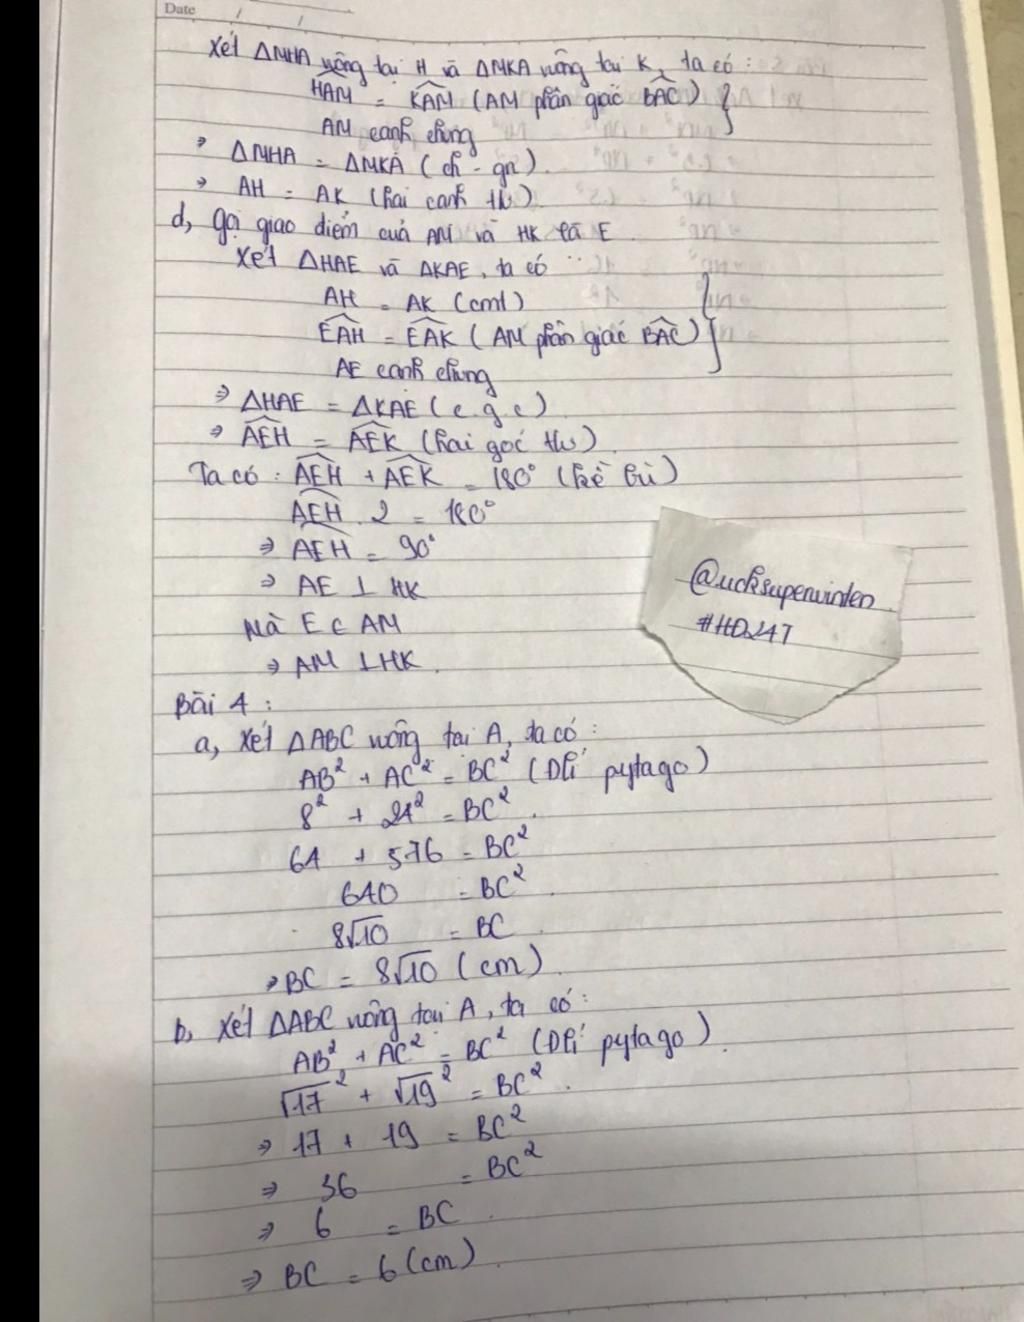 Date / /
Xét ΔMHA vuông tại H và ΔMKA vuông tại K, ta có :
HAM = KAM (AM phân giác BAC) }
AM cạnh chung
⇒ ΔMHA = ΔMKA (ch - gn).
⇒ AH = AK (hai cạnh tư)
d, gọi giao điểm của AM và HK là E
Xét ΔHAE và ΔKAE, ta có :
AH = AK (cmt)
EAH = EAK (AM phân giác BAC) }
AE cạnh chung
⇒ ΔHAE = ΔKAE (c . g . c)
⇒ AEH = AEK (hai góc tư)
Ta có : AEH + AEK = 180° (kề bù)
AEH . 2 = 180°
⇒ AEH = 90°
⇒ AE ⊥ HK
Mà E ∈ AM
⇒ AM ⊥ HK
@ucksupervinten
#HD247
Bài 4 :
a, Xét ΔABC vuông tại A, ta có :
AB² + AC² = BC² (Đlí pytago)
8² + 24² = BC²
64 + 576 = BC²
640 = BC²
8√10 = BC
⇒ BC = 8√10 (cm)
b, Xét ΔABC vuông tại A, ta có :
AB² + AC² = BC² (Đlí pytago)
√17² + √19² = BC²
⇒ 17 + 19 = BC²
⇒ 36 = BC²
⇒ 6 = BC
⇒ BC = 6 (cm)